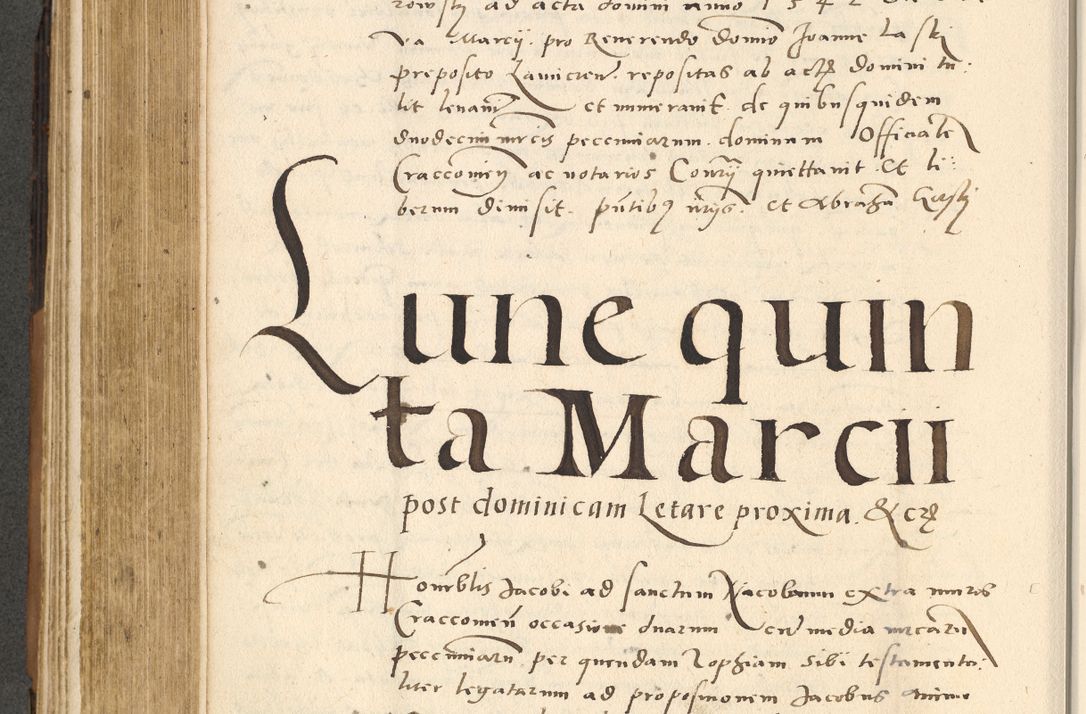 ad acta domini anno 1542
Va Marcii. pro Reverendo domino Joanne Laski
preposito repositas ab actis domini tu:
lit levavit et numeravit. de quibusquidem
duodecim mrcis pecuniarum. dominum Officiale
Craccovien ac notarios quiettavit. Et li:
berum dimisit. pntibus et Abraham
Lune quin
ta Marcii
post dominicam Letare proxima. &
Honrblis Jacobi ad sanctum Jacobum extra muros
Craccovien occasione duarum cum media mrcarum
pecuniarum per quendam Zophiam sibi testamenta:
liter legatarum ad propositionem Jacobus